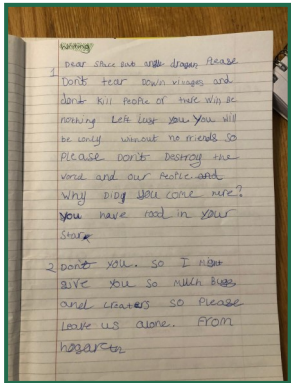 Writing
1 Dear Space bat angle dragon Please
Dont tear down vilages and
dont kill People or there Will be
nothing Left but you You will
be lonly without no friends so
Please don't Destroy the
World and our People. and
Why Did you come here?
You have food in your
Star
2 Don't you. So I
give you so much Bugs
and creaters so Please
Leave us alone. From
hogarth